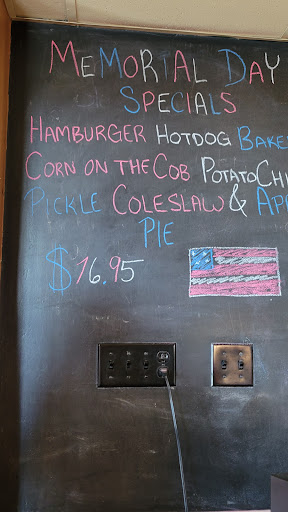 MEMORIAL DAY
SPECIALS
HAMBURGER HOTDOG BAKE
CORN ON THE COB POTATO CHI
PICKLE COLESLAW & AP
PIE
$16.95